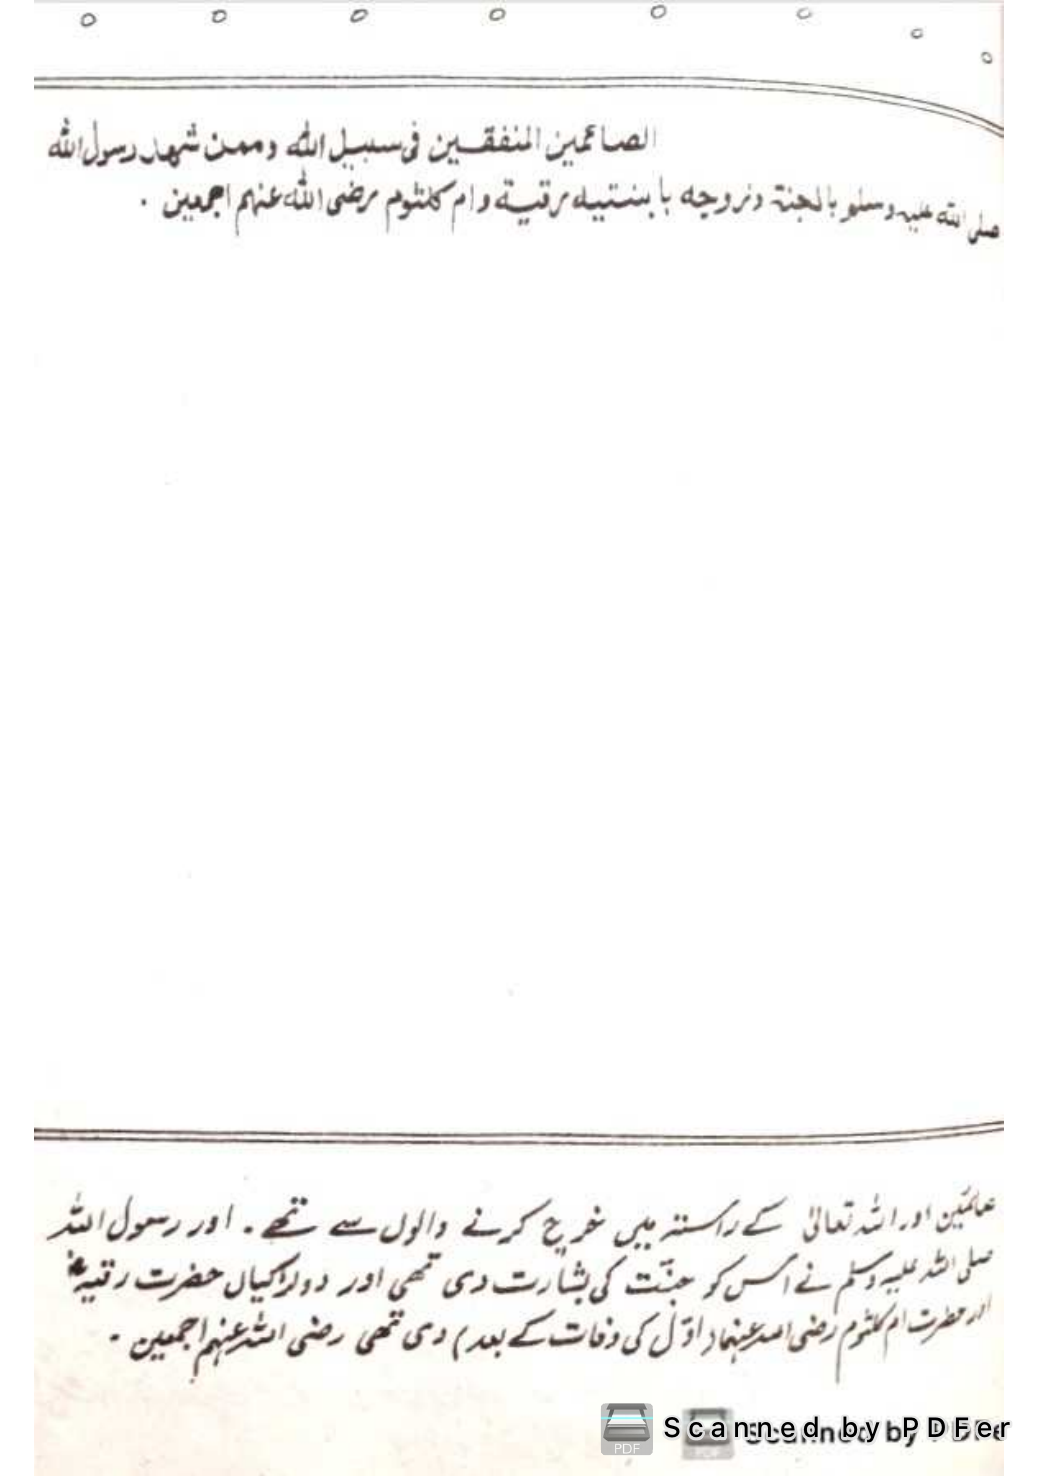 الصائمين المنفقين فى سبيل الله وممن شهد رسول الله
صلى الله عليه وسلم بالجنة وزوجه بابنتيه رقية وام كلثوم رضى الله عنهم اجمعين ۔
صائمین اور اللہ تعالیٰ کے راستہ میں خرچ کرنے والوں سے تھے ۔ اور رسول اللہ
صلی اللہ علیہ وسلم نے اس کو جنّت کی بشارت دی تھی اور دو لڑکیاں حضرت رقیہ
اور حضرت ام کلثوم رضی اللہ عنہما (اوّل کی وفات کے بعد) دی تھی رضی اللہ عنہم اجمعین ۔
Scanned by PDFer
Scanned by PDFe